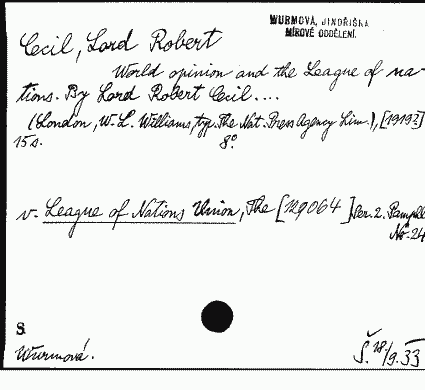 WURMOVÁ, JINDŘIŠKA
MÍROVÉ ODDĚLENÍ.
Cecil, Lord Robert
World opinion and the League of na-
tions. By Lord Robert Cecil....
(London, W. L. Williams, typ. The Nat. Press Agency Lim.), [1919?]
15 s. 8°
v. League of Nations Union, The [129064] Ser. 2. Pamphl
No. 24
S
Wurmová. Š. 18/9.33